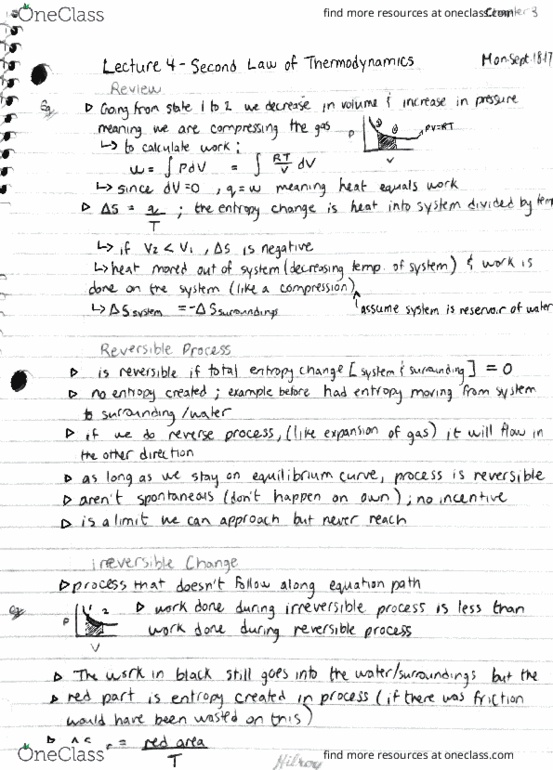 OneClass
find more resources at oneclass.com
Chapter 3
Lecture 4 - Second Law of Thermodynamics
Mon. Sept. 18 17
Review
Eg
▷ Going from state 1 to 2 we decrease in volume & increase in pressure
meaning we are compressing the gas
P
2
PV=RT
V
↳ to calculate work:
w = ∫ PdV = ∫ RT/V dV
↳ since dV=0, q=w meaning heat equals work
▷ ΔS = q/T ; the entropy change is heat into system divided by tem
↳ if V2 < V1, ΔS is negative
↳ heat moved out of system (decreasing temp. of system) & work is
done on the system (like a compression)
↳ ΔSsystem = -ΔSsurroundings
assume system is reservoir of water
Reversible Process
▷ is reversible if total entropy change [system & surrounding] = 0
▷ no entropy created ; example before had entropy moving from system
to surrounding/water
▷ if we do reverse process, (like expansion of gas) it will flow in
the other direction
▷ as long as we stay on equilibrium curve, process is reversible
▷ aren't spontaneous (don't happen on own) ; no incentive
▷ is a limit we can approach but never reach
irreversible Change
▷ process that doesn't follow along equation path
Eg
P
1 2
V
▷ work done during irreversible process is less than
work done during reversible process
▷ The work in black still goes into the water/surroundings but the
▷ red part is entropy created in process (if there was friction
would have been wasted on this)
= red area/T
Hilroy
OneClass
find more resources at oneclass.com